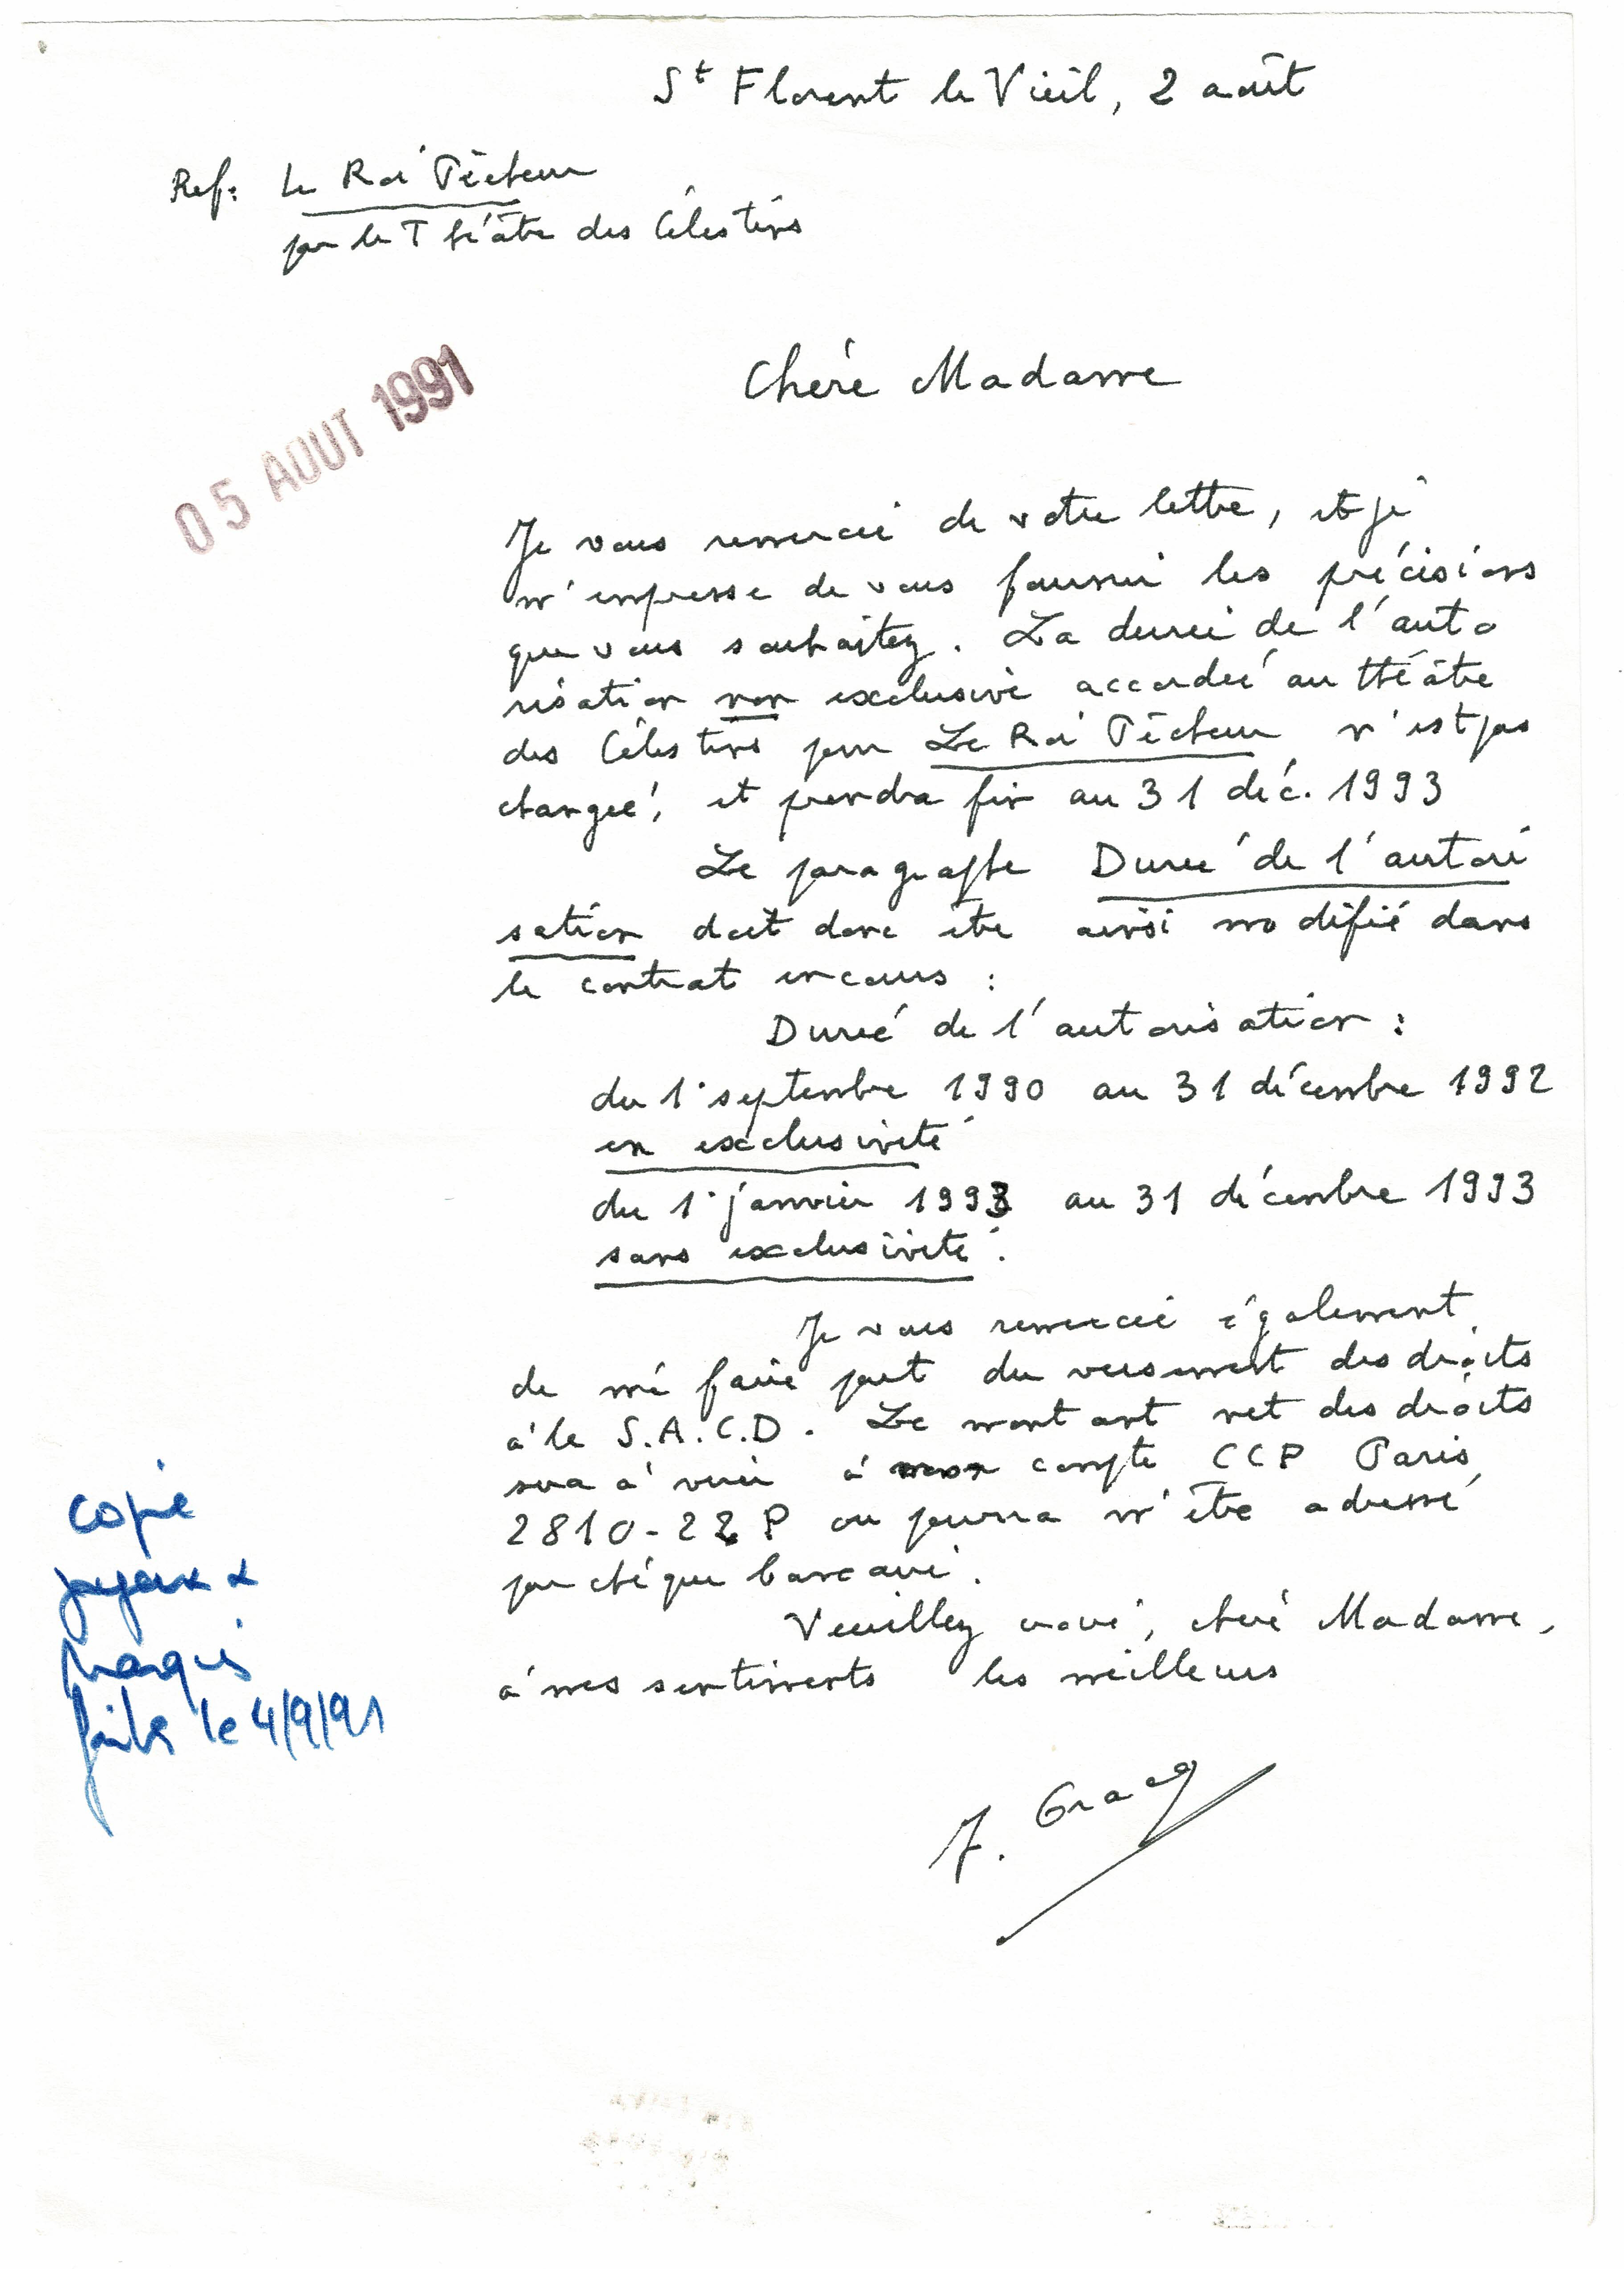 St Florent le Vieil, 2 août
Ref: Le Roi Pêcheur
par le Théâtre des Célestins
05 AOUT 1991
Chère Madame
Je vous remercie de votre lettre, et je
m'empresse de vous fournir les précisions
que vous souhaitez. La durée de l'auto
risation non exclusive accordée au théâtre
des Célestins pour Le Roi Pêcheur n'est pas
changée, et prendra fin au 31 déc. 1993
Le paragraphe Durée de l'autori
sation doit donc être ainsi modifié dans
le contrat en cours :
Durée de l'autorisation :
du 1er septembre 1990 au 31 décembre 1992
en exclusivité
du 1er janvier 1993 au 31 décembre 1993
sans exclusivité.
Je vous remercie également
de me faire part du versement des droits
à la S.A.C.D. Le montant net des droits
sera à virer à mon compte CCP Paris
2810-22 P ou pourra m'être adressé
par chèque bancaire.
Veuillez croire, chère Madame,
à mes sentiments les meilleurs
J. Gracq
copie
faite le 4/9/91